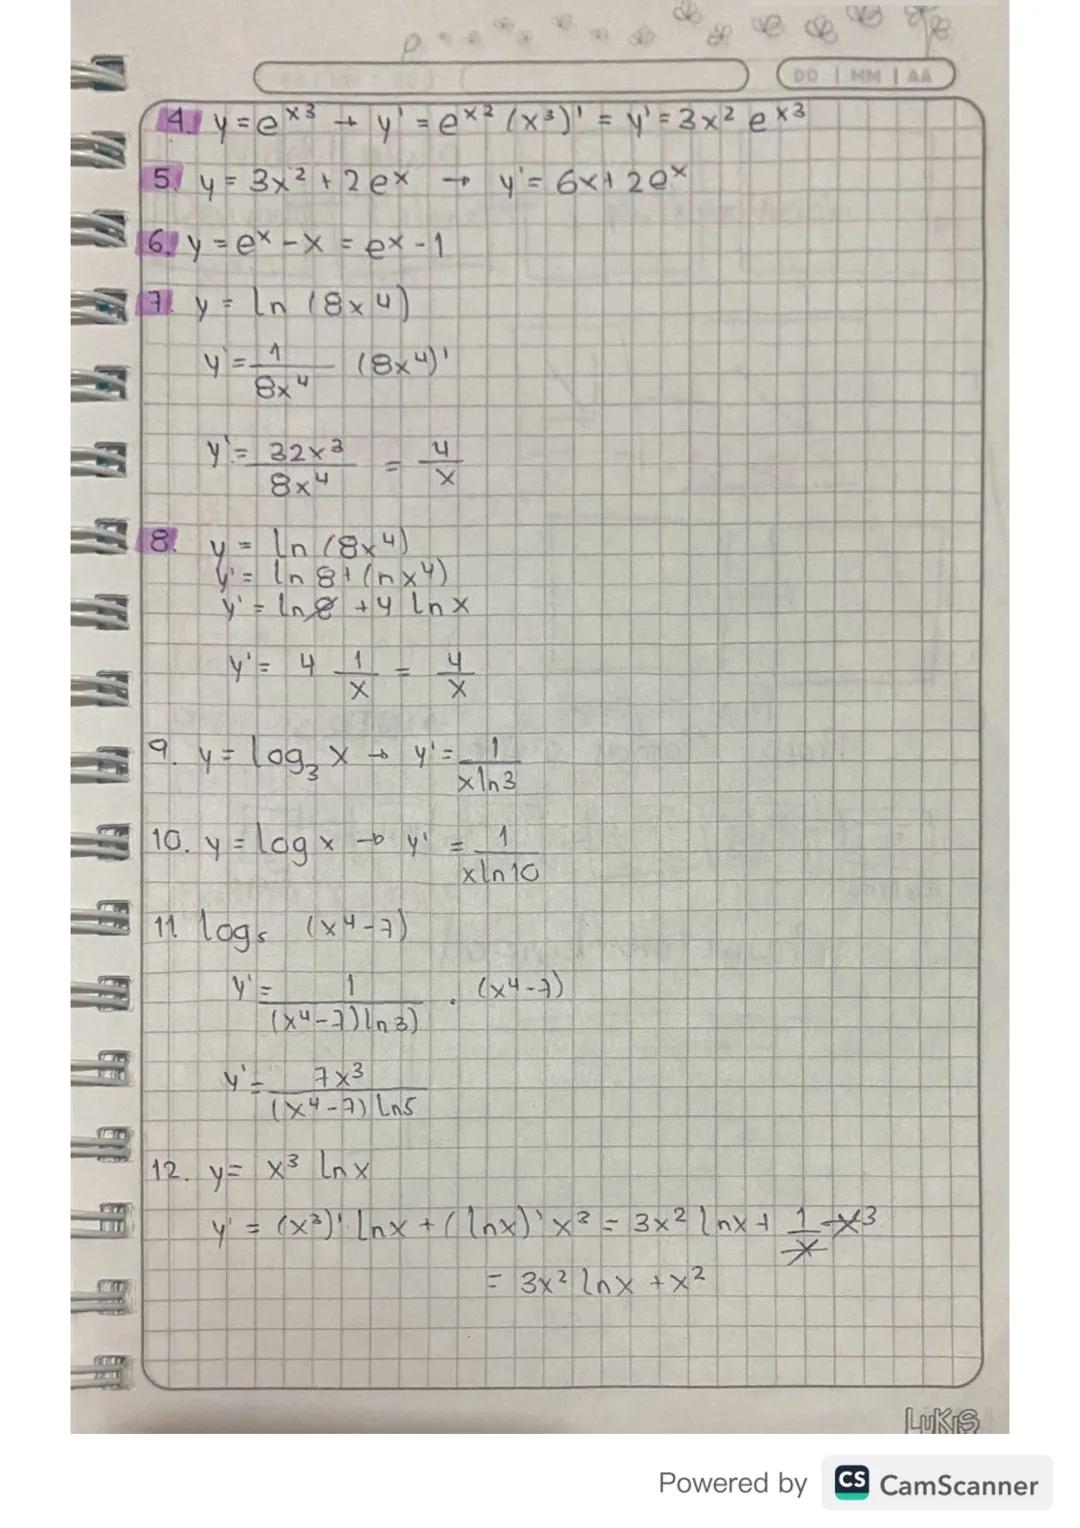 DD | MM | AA
4. y = e^x3 → y' = e^x2 (x^3)' = y' = 3x^2 e^x3
5. y = 3x^2 + 2e^x → y' = 6x + 2e^x
6. y = e^x - x = e^x - 1
7. y = ln (8x^4)
y' = 1/8x^4 (8x^4)'
y' = 32x^3/8x^4 = 4/x
8. y = ln (8x^4)
y' = ln 8 + (nx^4)
y' = ln 8 + 4 ln x
y' = 4 1/x = 4/x
9. y = log_3 x → y' = 1/xln3
10. y = log x → y' = 1/xln10
11. log_5 (x^4-7)
y' = 1/(x^4-7)ln3) . (x^4-7)
y' = 7x^3/(x^4-7) ln5
12. y = x^3 ln x
y' = (x^3)'. lnx + (lnx)' x^3 = 3x^2 lnx + 1/x x^3
= 3x^2 lnx + x^2
LuKis
Powered by CS CamScanner